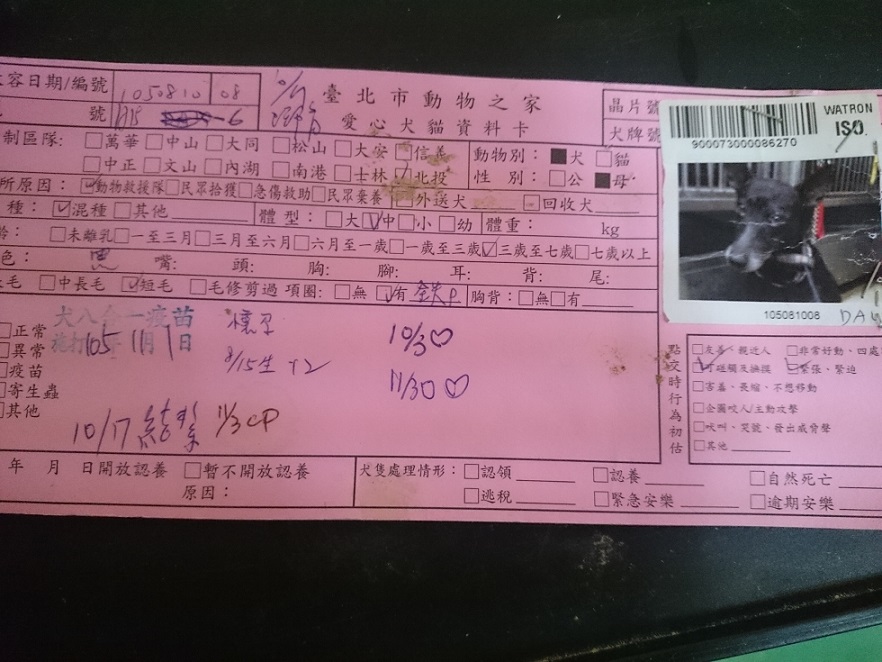 容日期/編號 1050810 08
號 -6
臺北市動物之家
愛心犬貓資料卡
晶片號
犬牌號
WATRON
ISO
900073000086270
制區隊: □萬華 □中山 □大同 □松山 □大安 □信義
□中正 □文山 □內湖 □南港 □士林 ☑北投
動物別: ■犬 □貓
性 別: □公 ■母
所原因: ☑動物救援隊 □民眾拾獲 □急傷救助 □民眾棄養 □外送犬 □回收犬
種: ☑混種 □其他 體 型: □大 ☑中 □小 □幼 體重: kg
齡: □未離乳 □一至三月 □三月至六月 □六月至一歲 □一歲至三歲 ☑三歲至七歲 □七歲以上
色: 黑 嘴: 頭: 胸: 腳: 耳: 背: 尾:
長毛 □中長毛 ☑短毛 □毛修剪過 項圈: □無 ☑有 鐵 胸背: □無 □有
105081008
□正常
□異常
□疫苗
□寄生蟲
□其他
犬八合一疫苗
施打 105年11月1日
懷孕
8/15生 x2
10/3♡
11/30♡
10/17 結紮 11/3 CP
點交時行為初估
□友善、親近人 □非常好動、四處
☑可碰觸及撫摸 ☑緊張、緊迫
□害羞、畏縮、不想移動
□企圖咬人/主動攻擊
□吠叫、哭號、發出威脅聲
□其他
年 月 日開放認養 □暫不開放認養
原因:
犬隻處理情形: □認領 □認養 □自然死亡
□逃稅 □緊急安樂 □逾期安樂